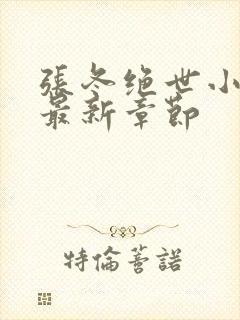 張冬绝世小
最新章節
特倫菩諾